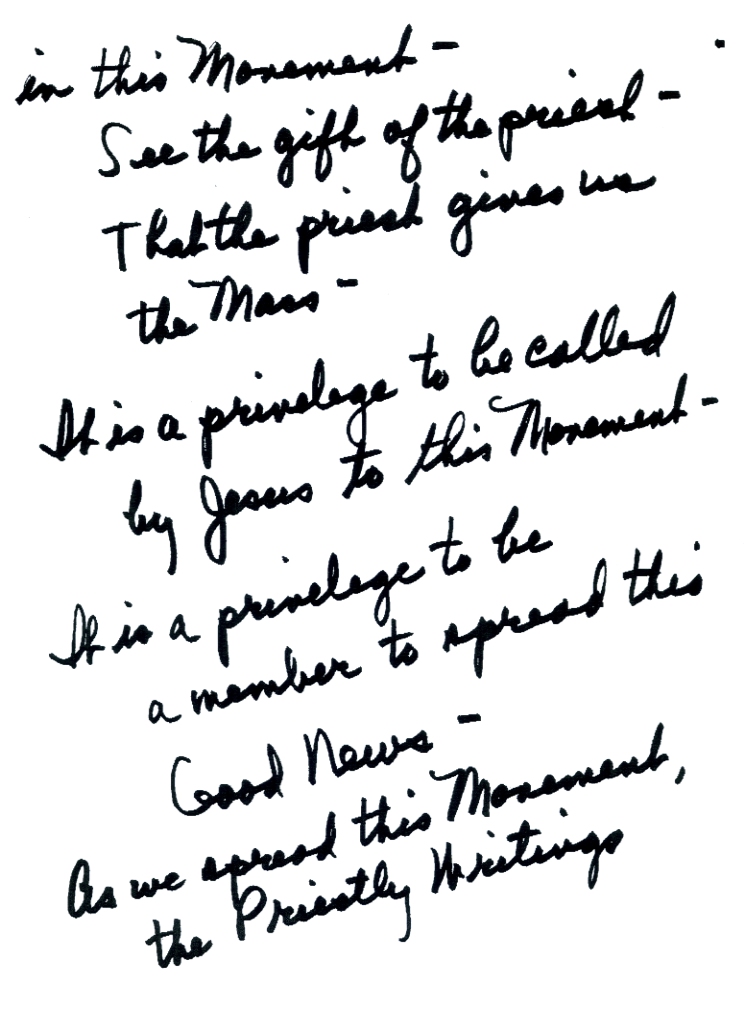 in this Movement -
See the gift of the priest -
That the priest gives us
the Mass -
It is a privelege to be called
by Jesus to this Movement -
It is a privelege to be
a member to spread this
Good News -
As we spread this Movement,
the Priestly Writings